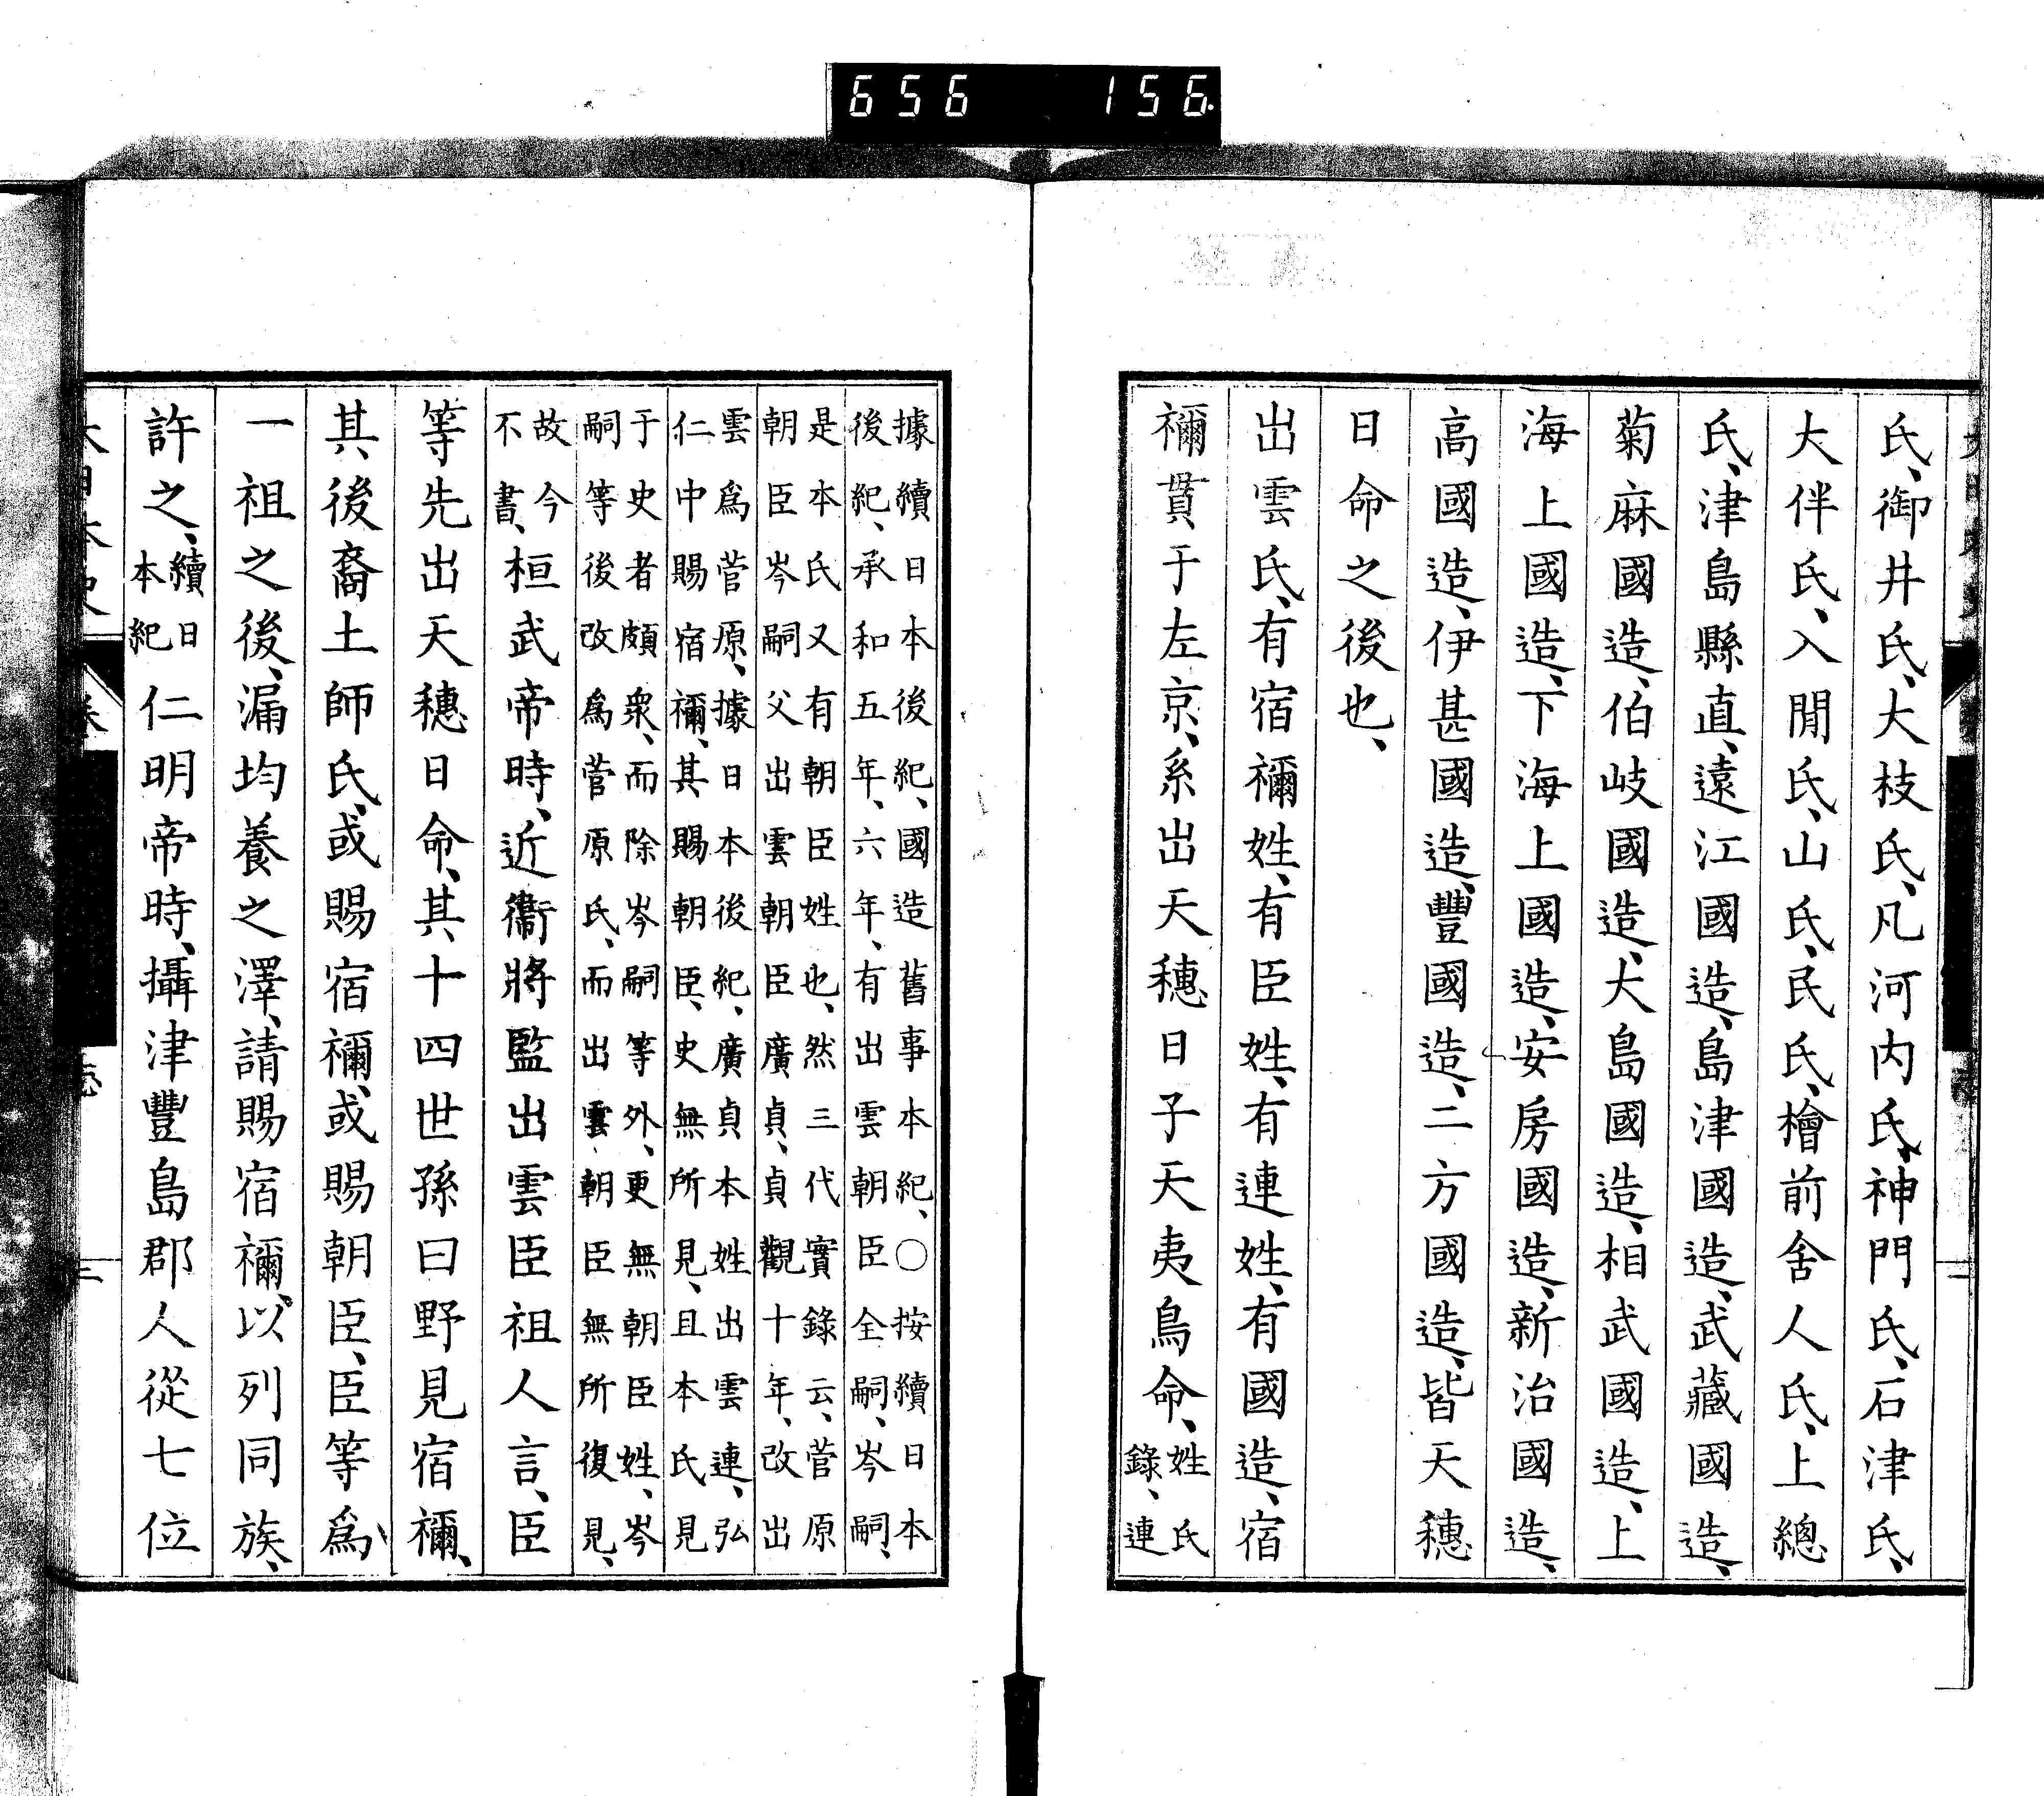 656 156.
氏、御井氏、大枝氏、凡河内氏、神門氏、石津氏、
大伴氏、入閒氏、山氏、民氏、檜前舍人氏、上總
氏、津島縣直、遠江國造、島津國造、武藏國造、
菊麻國造、伯岐國造、大島國造、相武國造、上
海上國造、下海上國造、安房國造、新治國造、
高國造、伊甚國造、豐國造、二方國造、皆天穗
日命之後也、
出雲氏、有宿禰姓、有臣姓、有連姓、有國造、宿
禰貫于左京、系出天穗日子天夷鳥命、姓氏錄、連
據續日本後紀、國造舊事本紀、○按續日本
後紀、承和五年、六年、有出雲朝臣全嗣、岑嗣、
是本氏又有朝臣姓也、然三代實錄云、菅原
朝臣岑嗣父出雲朝臣廣貞、貞觀十年、改出
雲爲菅原、據日本後紀、廣貞本姓出雲連、弘
仁中賜宿禰、其賜朝臣、史無所見、且本氏見
于史者頗衆、而除岑嗣等外、更無朝臣姓、岑
嗣等後改爲菅原氏、而出雲朝臣無所復見、
故今不書、桓武帝時、近衞將監出雲臣祖人言、臣
等先出天穗日命、其十四世孫曰野見宿禰、
其後裔土師氏、或賜宿禰、或賜朝臣、臣等爲
一祖之後、漏均養之澤、請賜宿禰、以列同族、
許之、續日本紀仁明帝時、攝津豐島郡人從七位